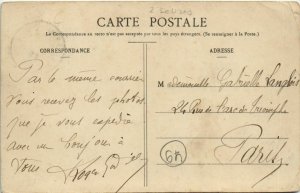 CARTE POSTALE
La Correspondance au recto n'est pas acceptée par tous les pays étrangers. (Se renseigner à la Poste.)
CORRESPONDANCE
ADRESSE
Par le même courrier
vous recevez les photos
que je vous expédie
avec un bonjour à
vous
M ademoiselle Gabrielle Langlois
Rue de l'arc de triomphe
Paris